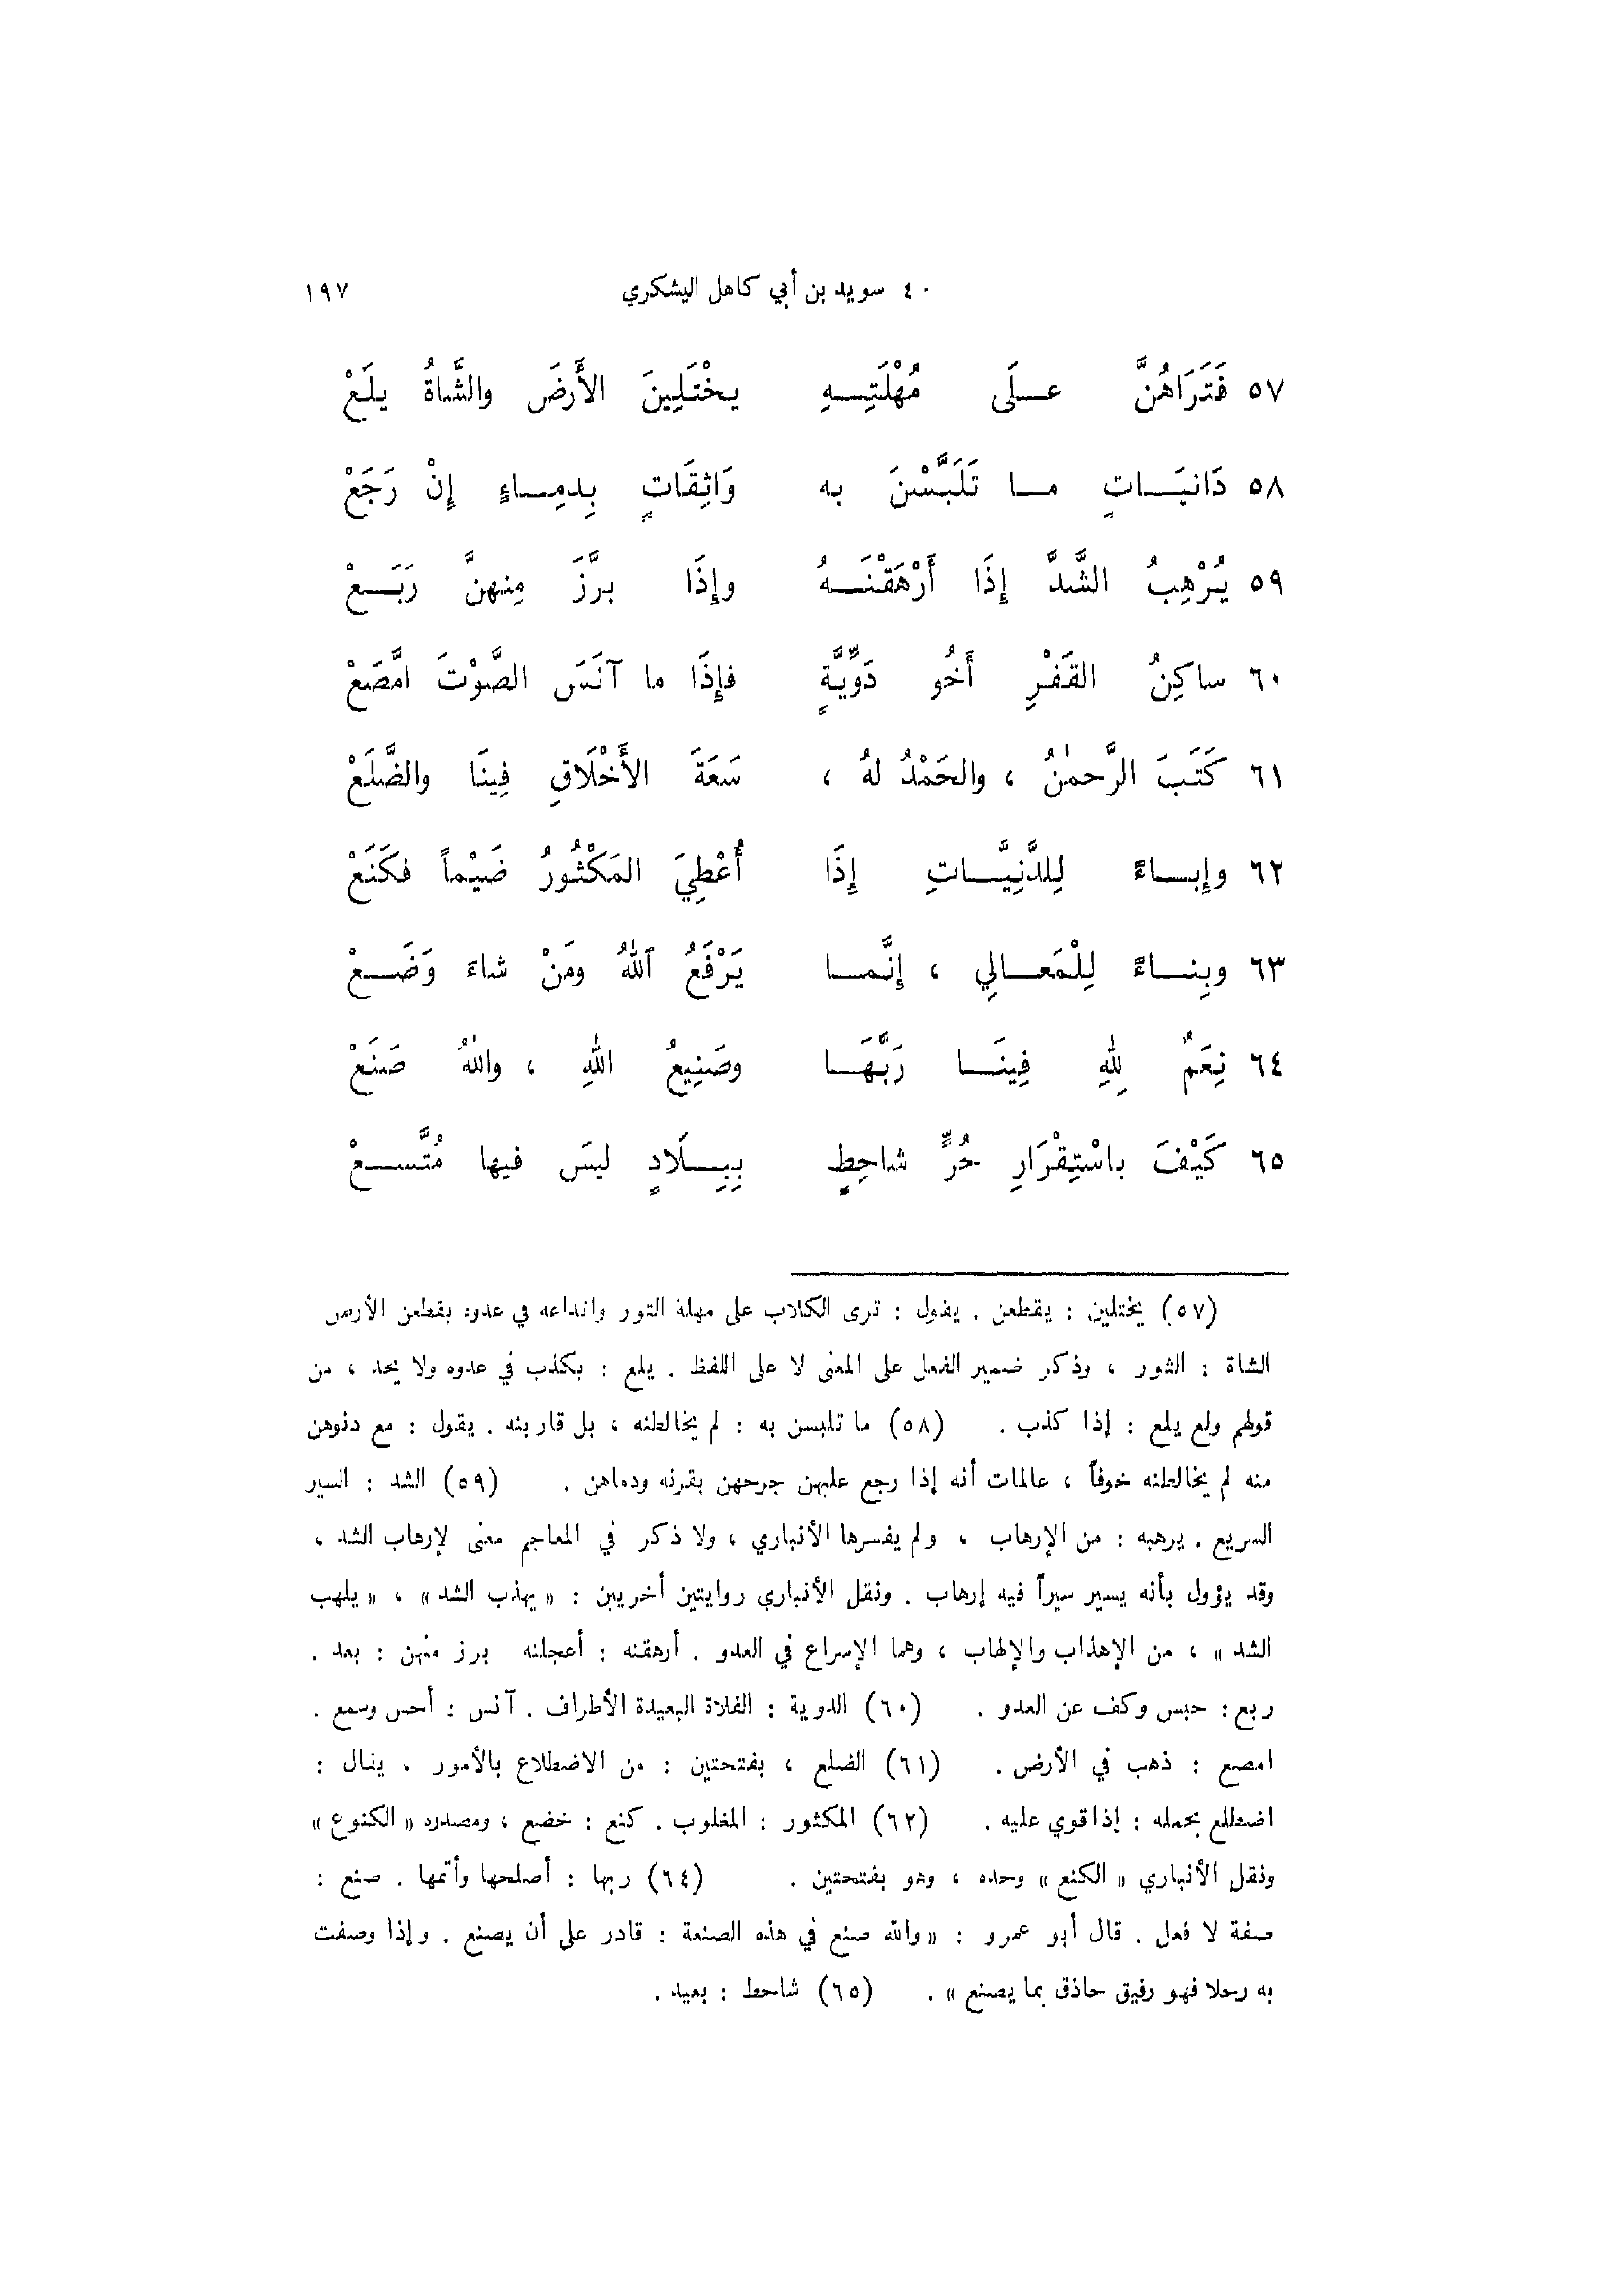 ٤٠ سويد بن أبي كاهل اليشكري ١٩٧
٥٧ فَتَرَاهُنَّ عـلَى مُهْلَتِـهِ يـخْتَلِينَ الأَرضَ والشَّاةُ يلَعْ
٥٨ دَانيَـاتٍ مـا تَلَبَّسْنَ به وَاثِقَاتٍ بِدمِـاءٍ إِنْ رَجَعْ
٥٩ يُرْهِبُ الشَّدَّ إِذَا أَرْهَقْنَـهُ وإِذَا برَّزَ مِنهنَّ رَبَـعْ
٦٠ ساكِنُ القَفْرِ أَخُو دَوِّيَّةٍ فإِذَا ما آنَسَ الصَّوْتَ امَّصَعْ
٦١ كَتَبَ الرَّحمٰنُ ، والحَمْدُ لهُ ، سَعَةَ الأَخْلَاقِ فِينَا والضَّلَعْ
٦٢ وإِبـاءً لِلدَّنِيَّـاتِ إِذَا أُعْطِيَ المَكْثُورُ ضَيْماً فكَنَعْ
٦٣ وبِنـاءً لِلْمَعـالِي ، إِنَّمـا يَرْفَعُ ٱللهُ ومَنْ شاءَ وَضَـعْ
٦٤ نِعَمٌ لِلهِ فِينَـا رَبَّهَـا وصَنِيعُ اللهِ ، واللهُ صَنَعْ
٦٥ كَيْفَ باسْتِقْرَارِ حُرٍّ شاحِطٍ بِبِـلَادٍ ليسَ فيها مُتَّسـعْ
(٥٧) يختلين : يقطعن . يقول : ترى الكلاب على مهلة الثور واتداعه في عدوه يقطعن الأرض
الشاة : الثور ، وذكر ضمير الفعل على المعنى لا على اللفظ . يلع : يكذب في عدوه ولا يجد ، من
قولهم ولع يلع : إذا كذب . (٥٨) ما تلبسن به : لم يخالطنه ، بل قاربنه . يقول : مع دنوهن
منه لم يخالطنه خوفاً ، عالمات أنه إذا رجع عليهن جرحهن بقرنه ودماهن . (٥٩) الشد : السير
السريع . يرهبه : من الإرهاب ، ولم يفسرها الأنباري ، ولا ذكر في المعاجم معنى لإرهاب الشد ،
وقد يؤول بأنه يسير سيراً فيه إرهاب . ونقل الأنباري روايتين أخريين : « يهذب الشد » ، « يلهب
الشد » ، من الإهذاب والإلهاب ، وهما الإسراع في العدو . أرهقنه : أعجلنه برز منهن : بعد .
ربع : حبس وكف عن العدو . (٦٠) الدوية : الفلاة البعيدة الأطراف . آنس : أحس وسمع .
امصع : ذهب في الأرض . (٦١) الضلع ، بفتحتين : من الاضطلاع بالأمور . يقال :
اضطلع بحمله : إذا قوي عليه . (٦٢) المكثور : المغلوب . كنع : خضع ، ومصدره « الكنوع »
ونقل الأنباري « الكنع » وحده ، وهو بفتحتين . (٦٤) ربها : أصلحها وأتمها . صنع :
صفة لا فعل . قال أبو عمرو : « والله صنع في هذه الصنعة : قادر على أن يصنع . وإذا وصفت
به رجلا فهو رفيق حاذق بما يصنع » . (٦٥) شاحط : بعيد .